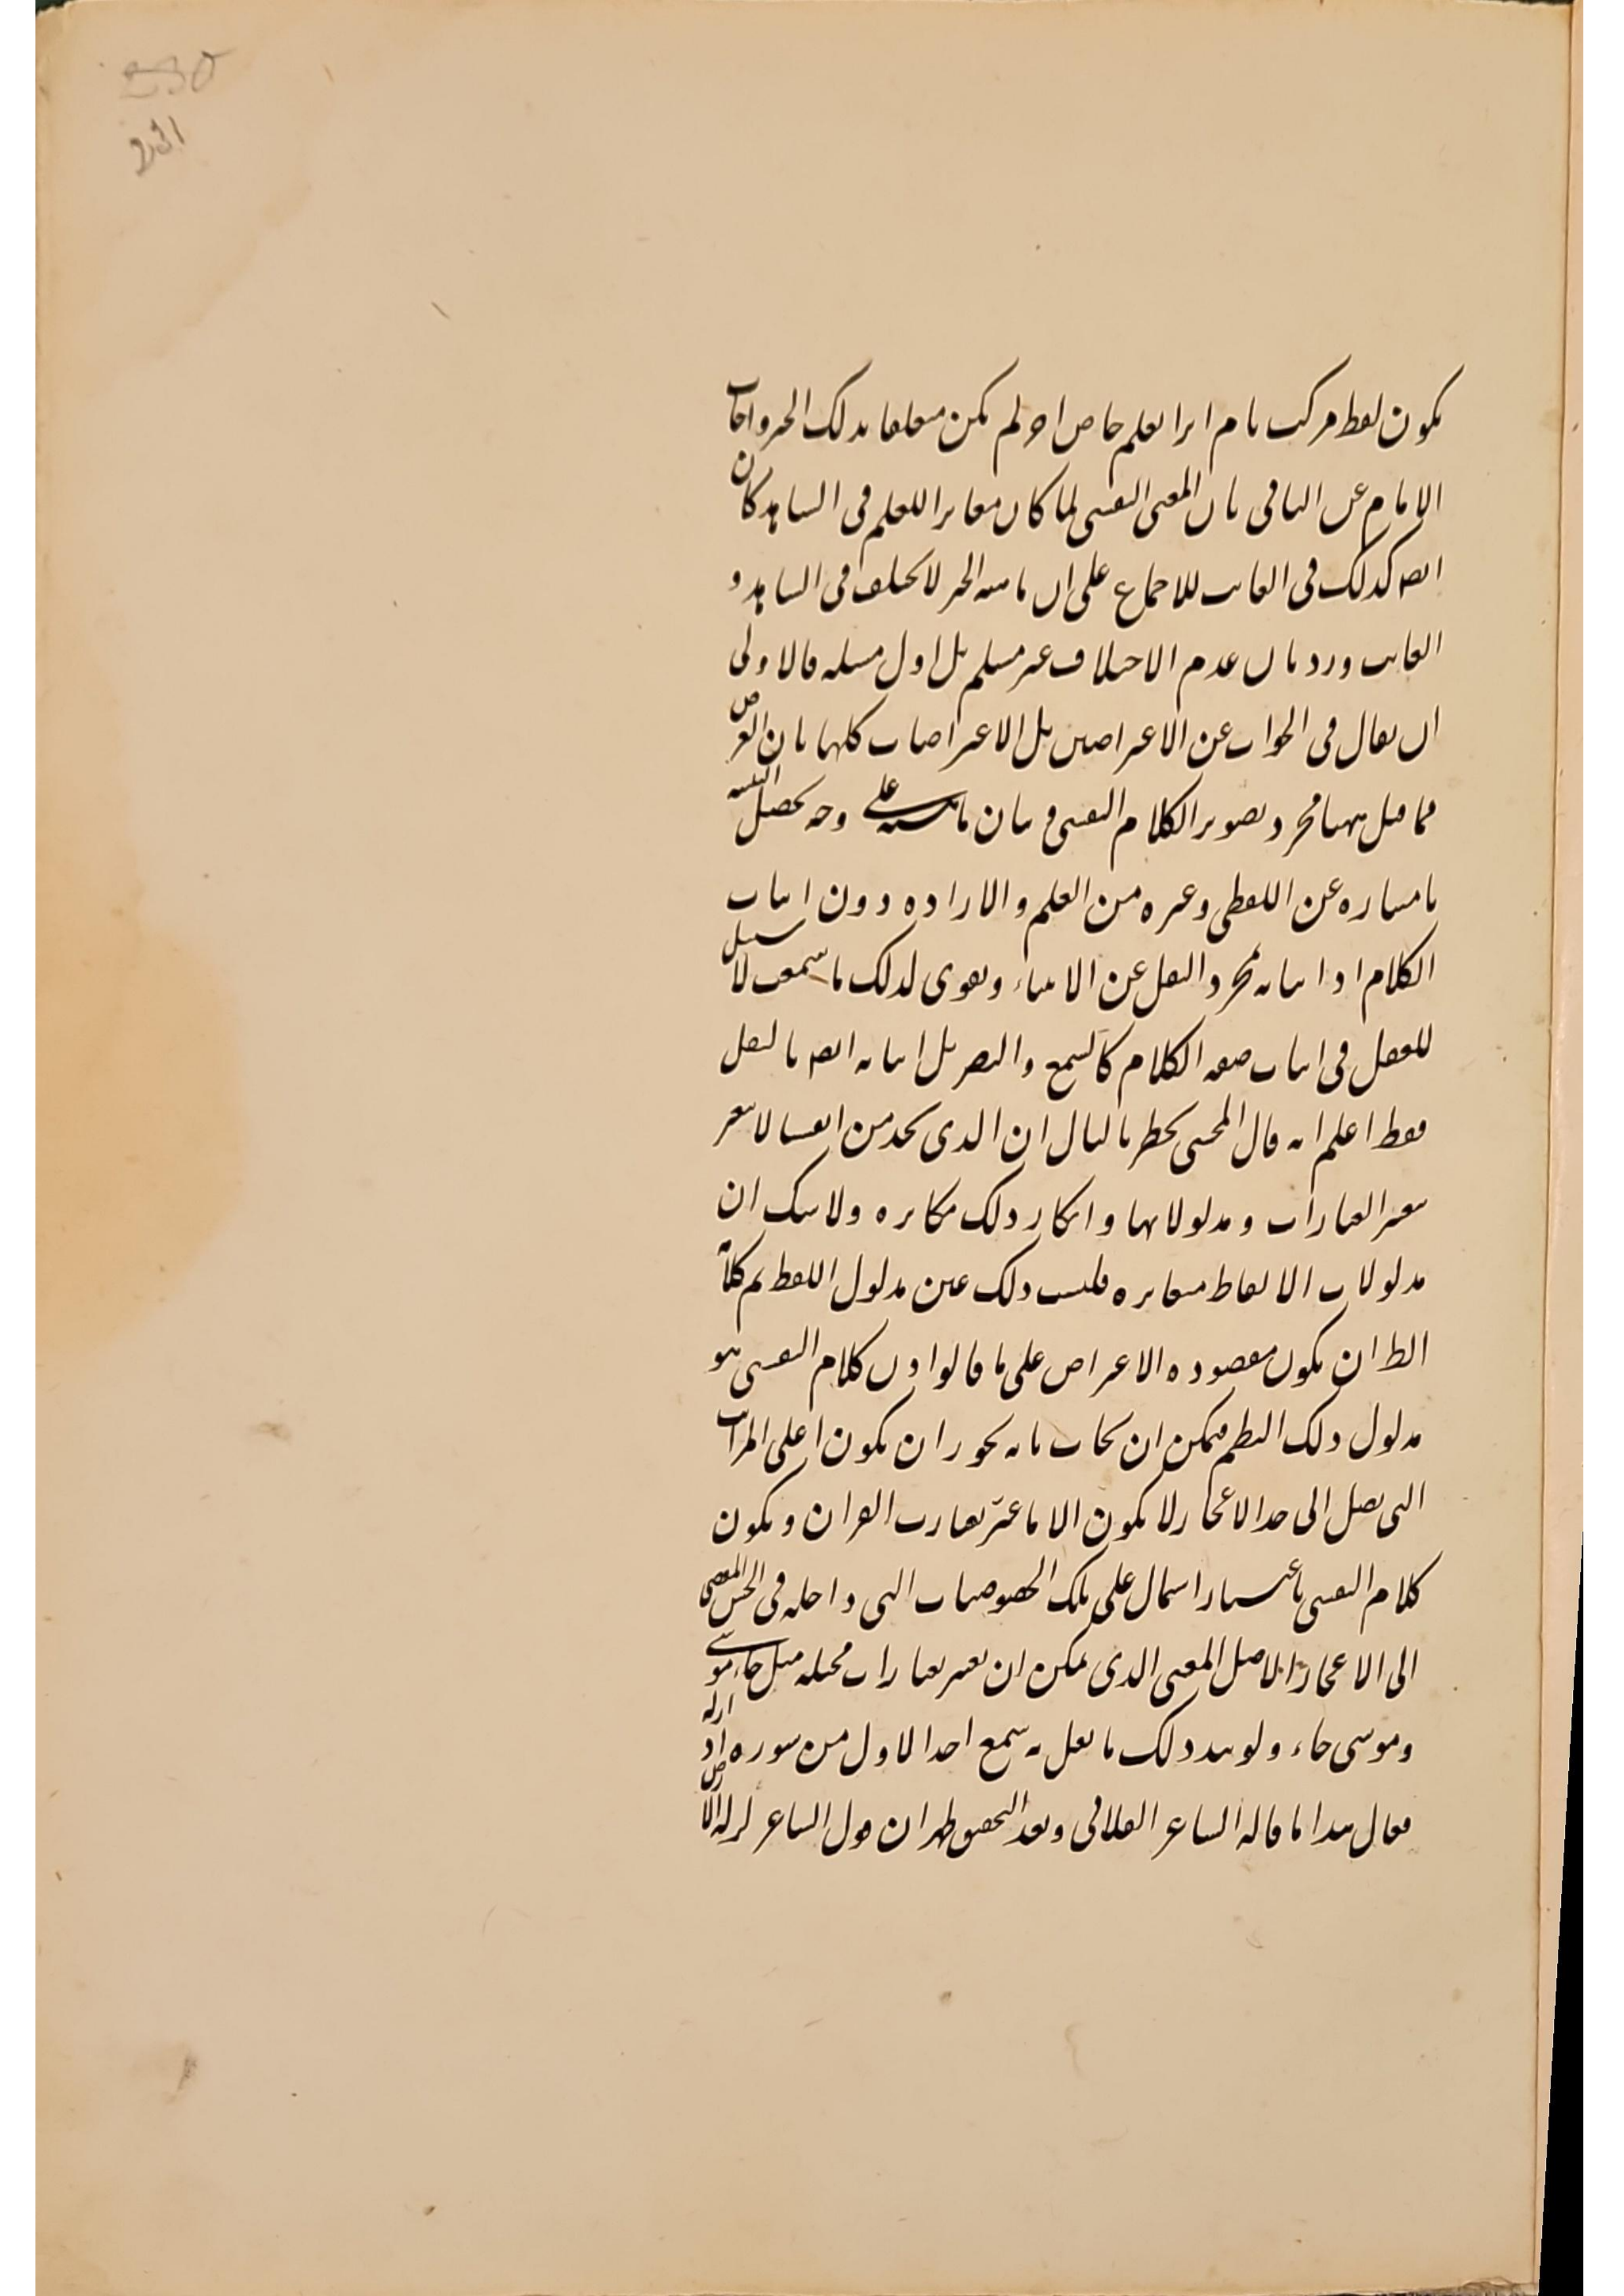 يكون لفظ مركب لعلم خاص اذ لم يكن متعلقا بذلك الخبر واجاب
الامام عن الثانى بان المعنى النفسى لما كان مغايرا للعلم فى الشاهد كان
ايضا كذلك فى الغائب للاجماع على ان ماهية الخبر لا يختلف فى الشاهد و
الغائب ورد بان عدم الاختلاف غير مسلم بل اول مسئلة فالاولى
ان يقال فى الجواب عن الاعتراضين بل الاعتراضات كلها بان الغرض
مما قيل ههنا مجرد تصوير الكلام النفسى وبيان ماهيته على وجه يحصل النفسه
بامتيازه عن اللفظى وغيره من العلم والارادة دون اثبات
الكلام اذ اثباته مجرد النقل عن الانبياء وتقوى لذلك ما سمعت لا سبيل
للعقل فى اثبات صفة الكلام كالسمع والبصر بل اثباته ايضا بالنقل
فقط اعلم انه قال المحشى يخطر بالبال ان الذى نجد من انفسنا لا يتغير
بتغير العبارات و مدلولاتها وانكار ذلك مكابرة ولا شك ان
مدلولات الالفاظ متغايرة فليست ذلك عين مدلول اللفظ تم كلامه
الظ ان يكون مقصوده الاعتراض على ما قالوا ان كلام النفسى هو
مدلول ذلك النظم فيمكن ان يجاب بانه يجوز ان يكون اعلى المراتب
التى يصل الى حد الاعجاز لا يكون الا ما عبر بعبارت القران ويكون
كلام النفسى باعتبار اشتمال على تلك الخصوصيات التى داخلة فى الحسن المفضى
الى الاعجاز لا اصل المعنى الذى يمكن ان يعبر بعبارات مختلفة مثل جاء موسى
وموسى جاء ولو يند ذلك ما نقل به سمع احد الاول من سوره اذا زلزله
فقال هذا ما قاله الشاعر الفلانى وبعد التحقيق ظهر ان قول الشاعر لزلة الارض